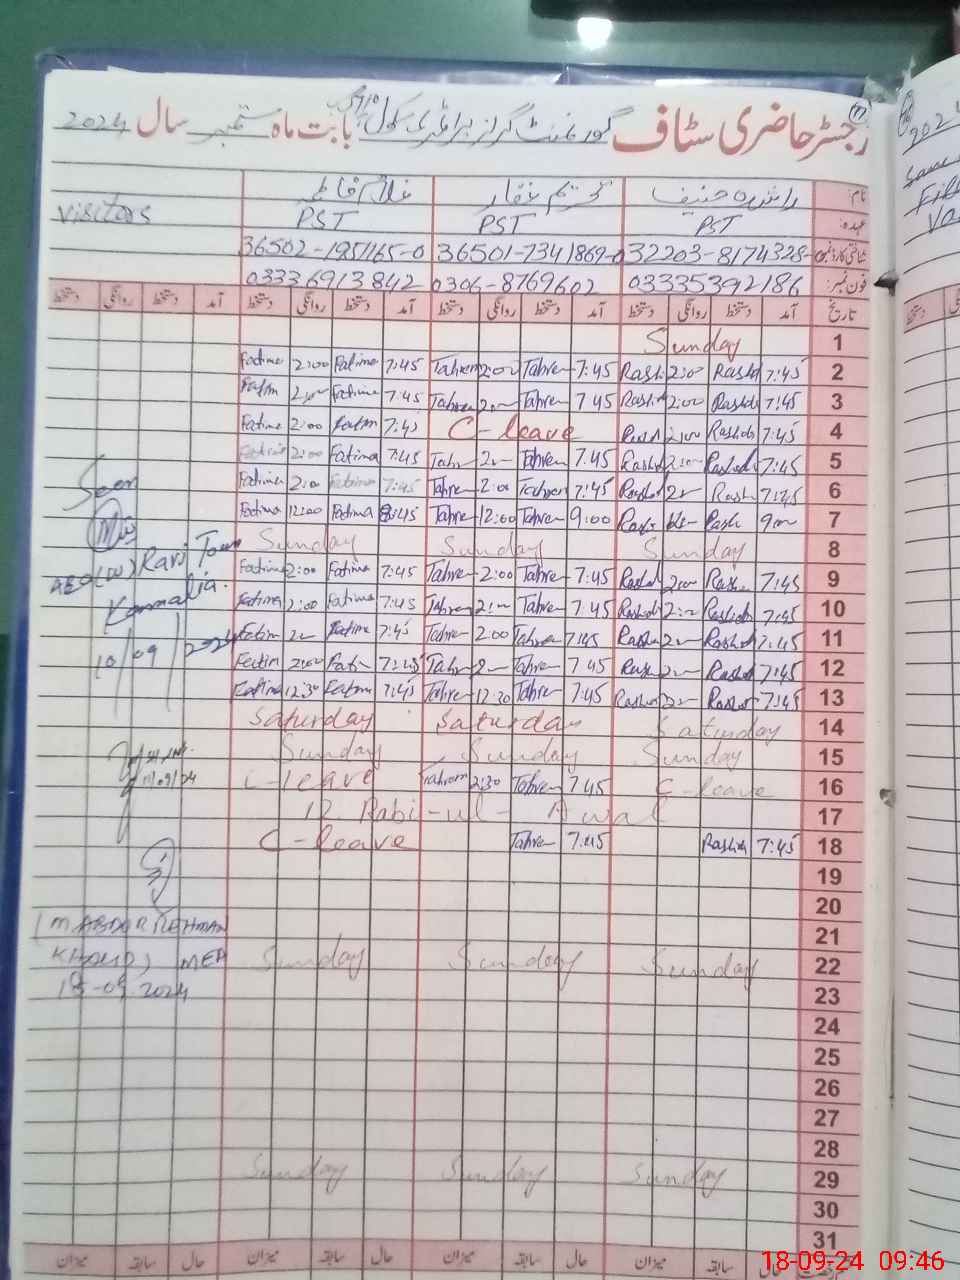 رجسٹر حاضری سٹاف گورنمنٹ گرلز پرائمری سکول بابت ماہ ستمبر سال 2024
نام: راشدہ حنیف تحریم غفار غلام فاطمہ
عہدہ: PST PST PST visitors
شناختی کارڈ نمبر 32203-8174328- 36501-7341869-0 36502-1951165-0
فون نمبر: 03335392186 0306-8769602 03336913842
تاریخ آمد دستخط روانگی دستخط آمد دستخط روانگی دستخط آمد دستخط روانگی دستخط آمد دستخط روانگی دستخط
Sunday 1
Fatima 2:00 Fatima 7:45 Tahrem 2:00 Tahrem 7:45 Rashi 2:00 Rashd 7:45 2
Fatim 2:00 Fatima 7:45 Tahrem 2:00 Tahrem 7:45 Rashid 2:00 Rashda 7:45 3
Fatima 2:00 Fatim 7:45 C-leave 2:00 Rashda 7:45 4
Fatima 2:00 Fatima 7:45 Tahr 2:00 Tahrem 7:45 Rashd 2:00 Rashda 7:45 5
Fatima 2:00 Fatima 7:45 Tahrem 2:00 Tahrem 7:45 Rashd 2:00 Rash 7:45 6
Fatima 12:00 Fatima 8:45 Tahre 12:00 Tahrem 9:00 Rash Rash 9:00 7
Sunday Sunday Sunday 8
Fatima 2:00 Fatima 7:45 Tahre 2:00 Tahre 7:45 Rashd 2:00 Rash 7:45 9
Fatima 2:00 Fatima 7:45 Tahrem 2:00 Tahre 7:45 Rashd 2:00 Rashda 7:45 10
Fatim 2:00 Fatima 7:45 Tahre 2:00 Tahrem 7:45 Rash 2:00 Rashd 7:45 11
Fatim 2:00 Fatim 7:45 Tahr 2:00 Tahre 7:45 Rash 2:00 Rashd 7:45 12
Fatima 12:30 Fatim 7:45 Tahre 12:30 Tahre 7:45 Rashd Rashd 7:45 13
Saturday Saturday Saturday 14
Sunday Sunday Sunday 15
C-leave Tahrem 2:30 Tahre 7:45 C-leave 16
12 Rabi-ul-Awal 17
C-leave Tahre 7:45 Rashda 7:45 18
19
20
21
Sunday Sunday Sunday 22
23
24
25
26
27
28
Sunday Sunday Sunday 29
30
31
Seen
AEO (W) Ravi Town
Kammalia.
10/09/2024
11/09/24
(M ABDUR REHMAN
KHALID) MEA
18-09-2024
حال سابقہ میزان حال سابقہ میزان حال سابقہ میزان حال سابقہ میزان
18-09-24 09:46